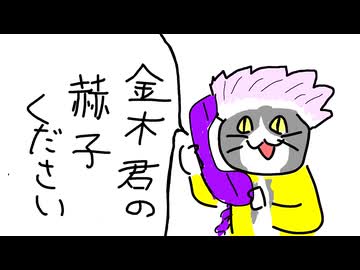 金木君の
赫子
ください